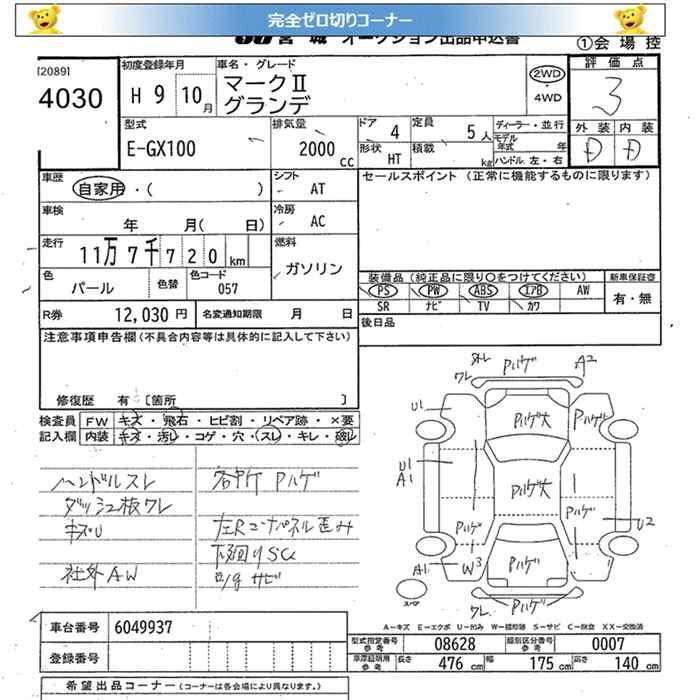 完全ゼロ切りコーナー
JU 宮城 オークション出品申込書 ①会場控
[2089]
4030
初度登録年月 H 9年 10月
車名・グレード マークⅡ グランデ
2WD ・ 4WD
評価点 3
外装 D 内装 D
型式 E-GX100
排気量 2000 cc
ドア 4
形状 HT
定員 5人
積載 kg
ディーラー・並行
モデル年式 年
ハンドル 左・右
車歴 自家用・( )
シフト AT
セールスポイント (正常に機能するものに限ります)
車検 年 月( 日)
冷房 AC
走行 11万7千720km
燃料 ガソリン
色 パール 色替 色コード 057
装備品(純正品に限り○をつけてください) 新車保証書
PS PW ABS エアB AW 有・無
SR ナビ TV カワ
R券 12,030円 名変通知期限 月 日
後日品
注意事項申告欄(不具合内容等は具体的に記入して下さい)
修復歴 有〔箇所 〕
検査員 記入欄
FW キズ・飛石・ヒビ割・リペア跡・×要
内装 キズ・汚レ・コゲ・穴・スレ・キレ・破レ
ハンドルスレ 各所Pハゲ
ダッシュ板ワレ
キズU 左Rコーナパネル歪み
下廻りSC
社外AW ロッグサビ
外レ Pハゲ A2
ワレ
U1 Pハゲ大 Pハゲ
U1
A1 Pハゲ大
Pハゲ Pハゲ U2
A1 W3 Pハゲ
スペア
ワレ Pハゲ
A−キズ E−エクボ U−凹み W−補修跡 S−サビ C−腐食 XX−交換済
車台番号 6049937
登録番号
型式指定番号 参考 08628 類別区分番号 参考 0007
車庫証明用 参考 長さ 476cm 幅 175cm 高さ 140cm
希望出品コーナー(コーナーは各会場により異なります。)